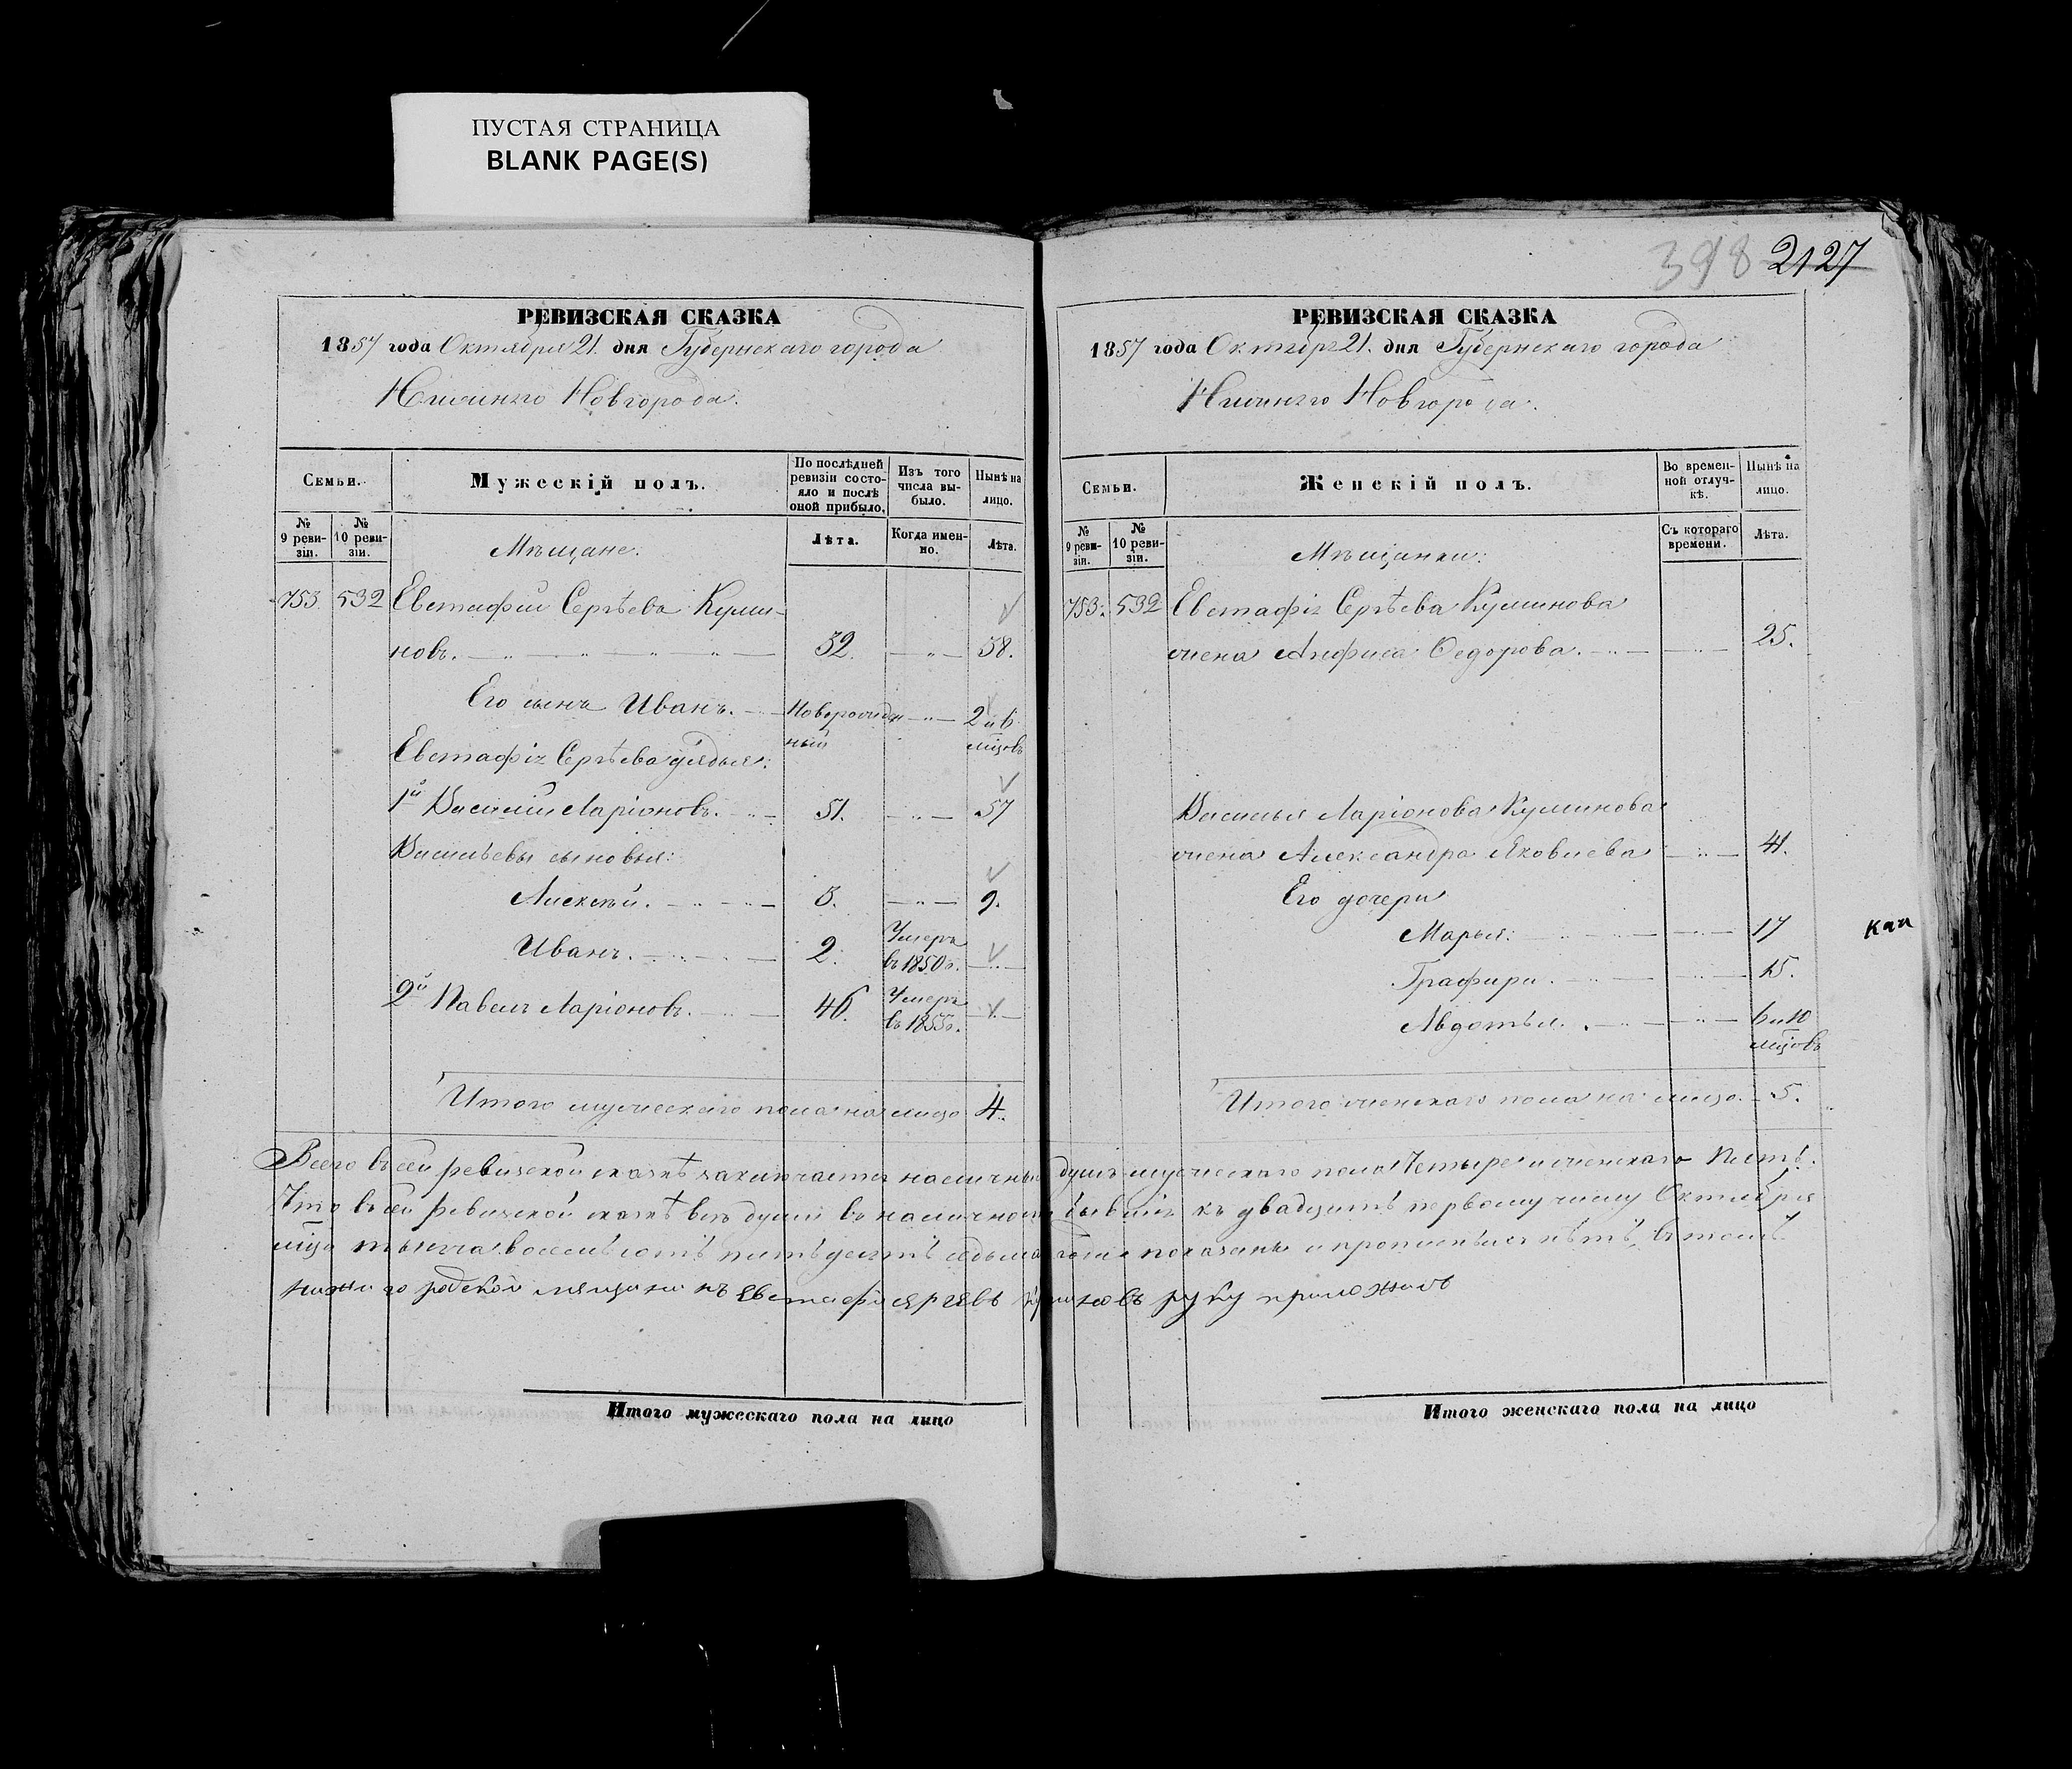 ПУСТАЯ СТРАНИЦА
BLANK PAGE(S)
398 2127
РЕВИЗСКАЯ СКАЗКА
1857 года Октября 21. дня Губернскаго города
Нижняго Новгорода.
Семьи.
Мужескій полъ.
По послѣдней ревизіи состояло и послѣ оной прибыло.
Изъ того числа выбыло.
Нынѣ на лицо.
№ 9 ревизіи.
№ 10 ревизіи.
Мѣщане:
Лѣта.
Когда именно.
Лѣта.
753. 532 Евстафий Сергѣевъ Кули-
новъ. 32. 38.
Его сынъ Иванъ. Новорожден 2 и 6
ный мцовъ
Евстафія Сергѣева дядья:
1й Василий Ларіоновъ. 51. 57
Васильевы сыновья:
Алексѣй. 3. 9.
Иванъ. 2. Умеръ
въ 1850 г.
2й Павелъ Ларіоновъ. 46. Умеръ
въ 1855 г.
Итого мужескаго пола на лицо 4.
РЕВИЗСКАЯ СКАЗКА
1857 года Октября 21. дня Губернскаго города
Нижняго Новгорода.
Семьи.
Женскій полъ.
Во временной отлучкѣ.
Нынѣ на лицо.
№ 9 ревизіи.
№ 10 ревизіи.
Мѣщанки:
Съ котораго времени.
Лѣта.
753. 532 Евстафія Сергѣева Кулинова
жена Анфиса Федорова. 25.
Василья Ларіонова Кулинова
жена Александра Яковлева 41.
Его дочери
Марья. 17
Графира. 15.
Авдотья. 6 и 10
мцовъ
Итого женскаго пола на лицо. 5.
Всего въ сей ревизской сказкѣ заключается наличныхъ душъ мужескаго пола четыре и женскаго пять.
Что въ сей ревизской сказкѣ всѣ души въ наличности бывшія къ двадцать первому числу Октября
мца тысяча восемьсотъ пятьдесятъ седьмаго года показаны и прописныхъ нѣтъ, въ томъ
нижи го родской мящини нъ Евстафи сяргявъ Кулиновъ руку приложилъ
Итого мужескаго пола на лицо
Итого женскаго пола на лицо